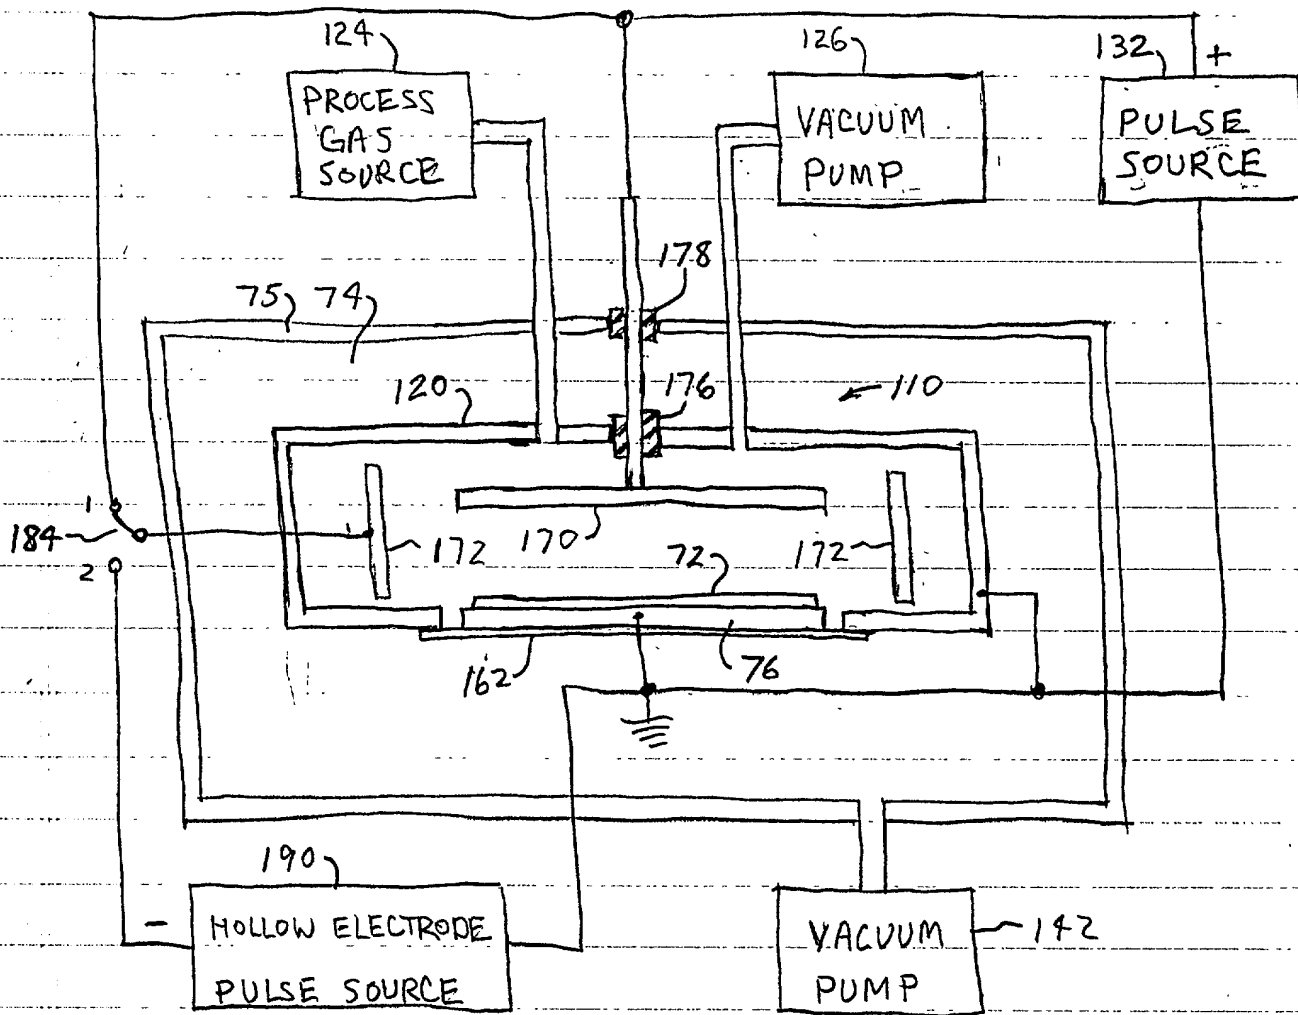 124
126
132
+
PROCESS
GAS
SOURCE
VACUUM
PUMP
PULSE
SOURCE
178
75
74
120
176
110
1
184
172
170
172
2
72
162
76
190
-
HOLLOW ELECTRODE
PULSE SOURCE
VACUUM
PUMP
142